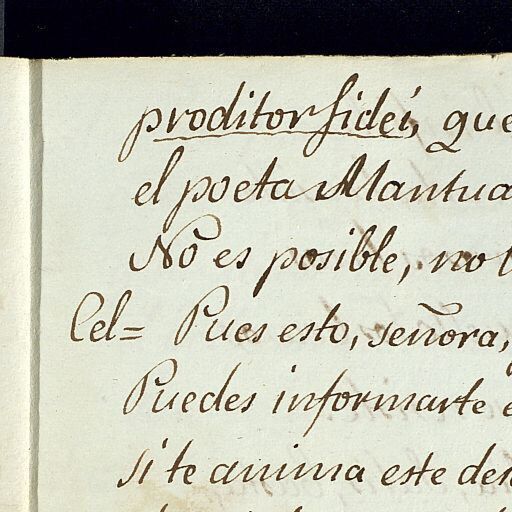 proditor fidei, que
el poeta Mantua
No es posible, no
Cel= Pues esto, señora,
Puedes informarte
si te anima este des